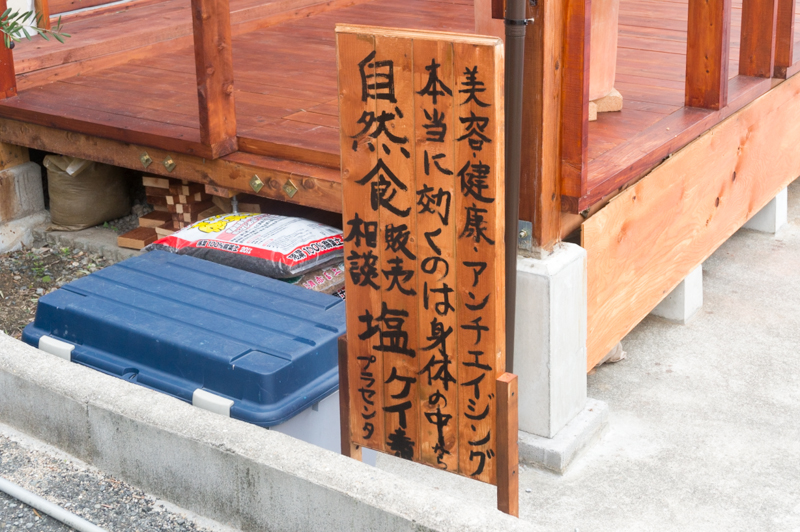 美容・健康・アンチエイジング
本当に効くのは身体の中から
自然食販売
相談
塩ケイ素
プラセンタ